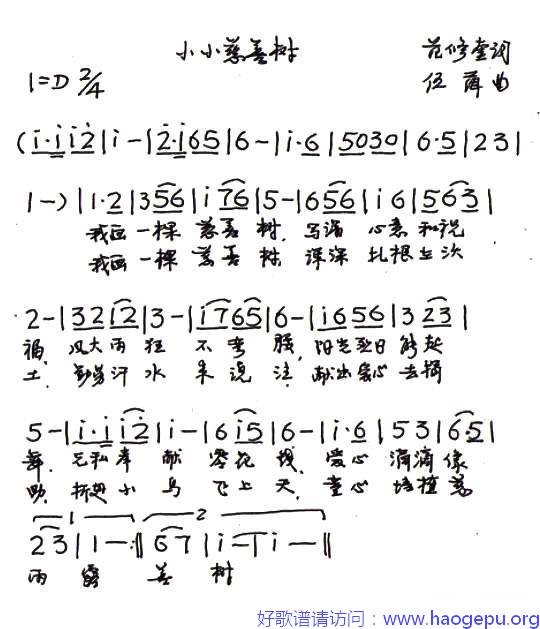 小小慈善树
范修奎词
1=D 2/4
伍 萍 曲
(i·i i2|i -|2·i 65|6 -|i·6|5030|6·5|23|
1 -)|1·2|3 56|i 76|5 -|6 56|i 6|5 63|
我画一棵 慈善 树, 写满 心意 和祝
我画一棵 慈善 树, 深深 扎根
2 -|32 i2|3 -|i7 65|6 -|i6 56|3 23|
福, 风大雨狂 不弯 腰,
土, 汗水 来浇 献出爱心 去捐
5 -|i·i i2|i -|6 i5|6 -|i·6|53|65|
舞, 无私奉 献 零花 钱, 爱心 滴滴 像
助, 折只小 鸟 飞上 天, 童心 培植 慈
1 2
23|1 -:‖67|i -|i -‖
雨 露 善 树
好歌谱请访问：www.haogepu.org